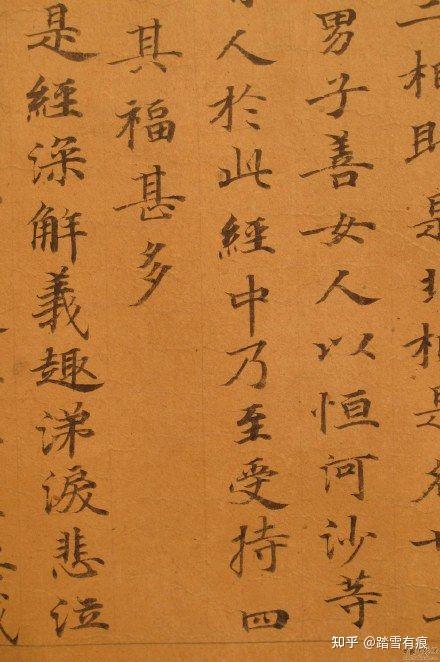 二相即是非相是名
男子善女人以恒河沙等
有人於此經中乃至受持四
其福甚多
是經深解義趣涕淚悲泣
知乎 @踏雪有痕